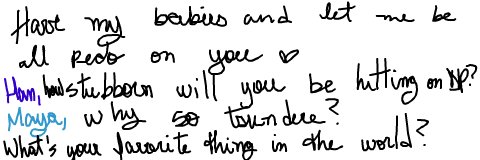 Have my babies and let me be
all pedo on you ♡
Ham, how stubborn will you be hitting on
Maya, why so tsundere?
What's your favorite thing in the world?